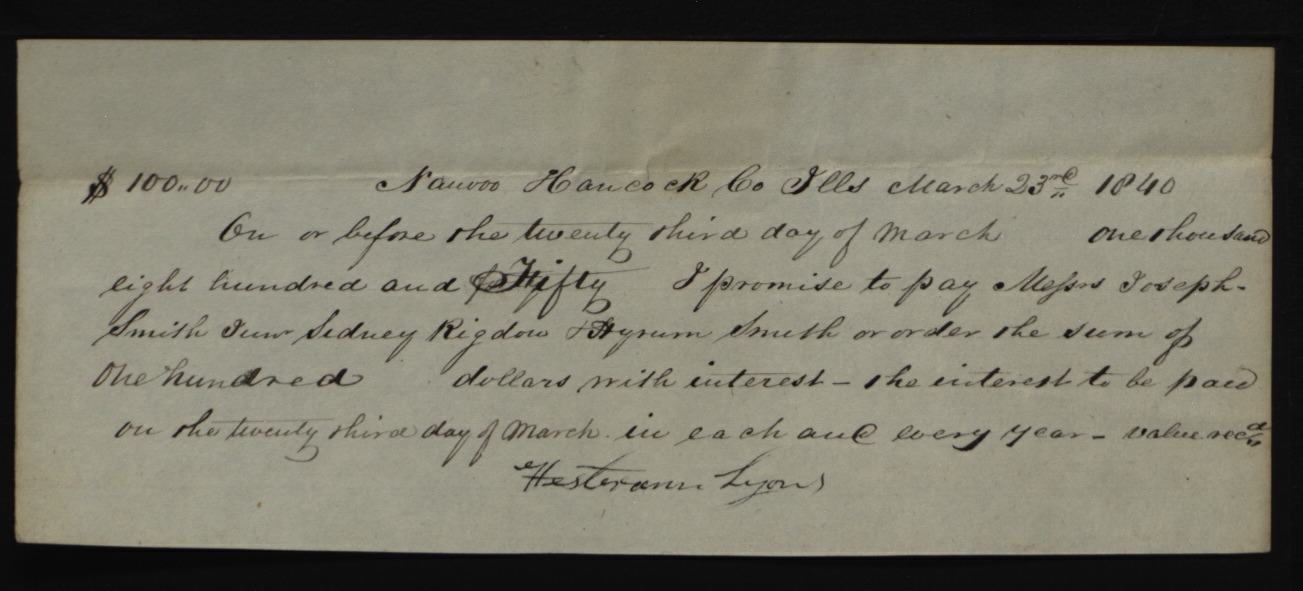 $ 100,,00 Nauvoo Hancock Co Ills March 23rd 1840
On or before the twenty third day of March one thousand
eight hundred and Fifty I promise to pay Messrs Joseph-
Smith Junr Sidney Rigdon & Hyrum Smith or order the sum of
One hundred dollars with interest - the interest to be paid
on the twenty third day of March in each and every year - value recd
Hesterann Lyons